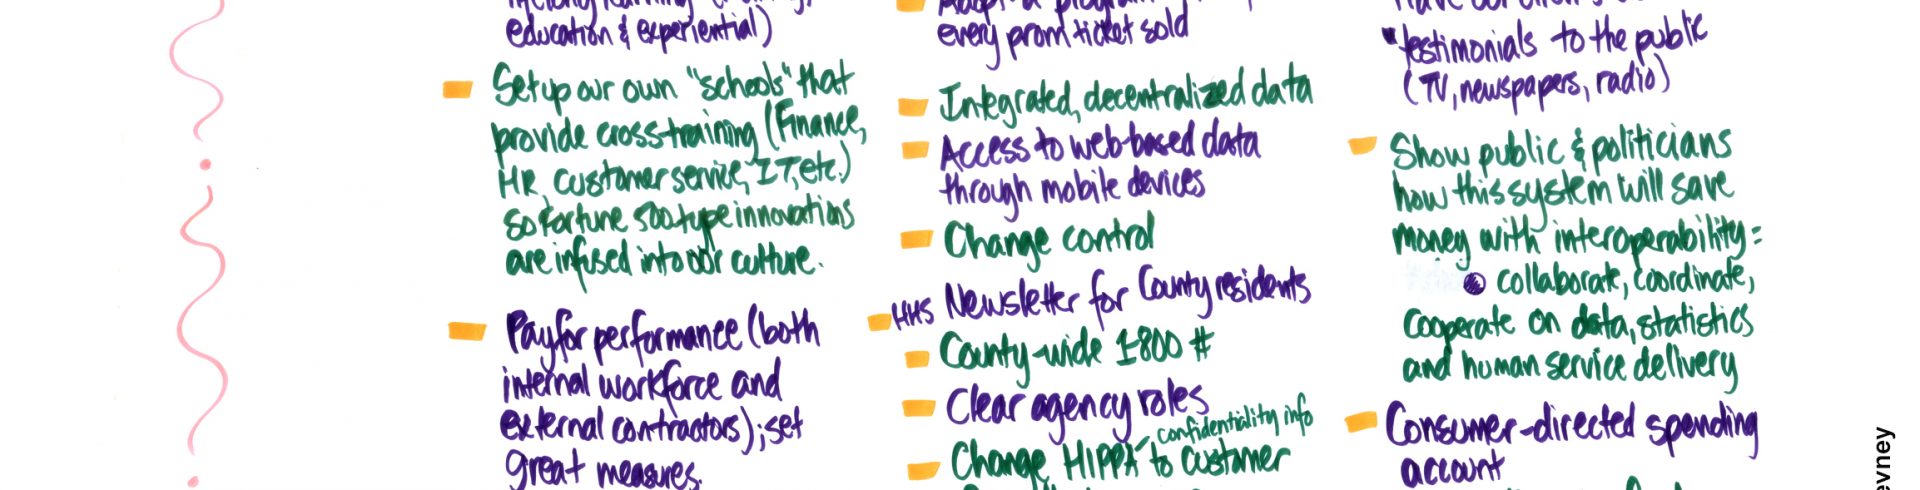 education & experiential)
Setup our own "schools" that
provide cross-training (Finance,
HR, customer service, IT, etc.)
so fortune 500 type innovations
are infused into our culture.
Pay for performance (both
internal workforce and
external contractors); set
great measures.
every prom ticket sold
Integrated, decentralized data
Access to web-based data
through mobile devices
Change control
HHS Newsletter for County residents
County-wide 1-800 #
Clear agency roles
confidentiality info
Change HIPPA to customer
"testimonials to the public
(TV, newspapers, radio)
Show public & politicians
how this system will save
money with interoperability:
collaborate, coordinate,
cooperate on data, statistics
and human service delivery
Consumer-directed spending
account
evney